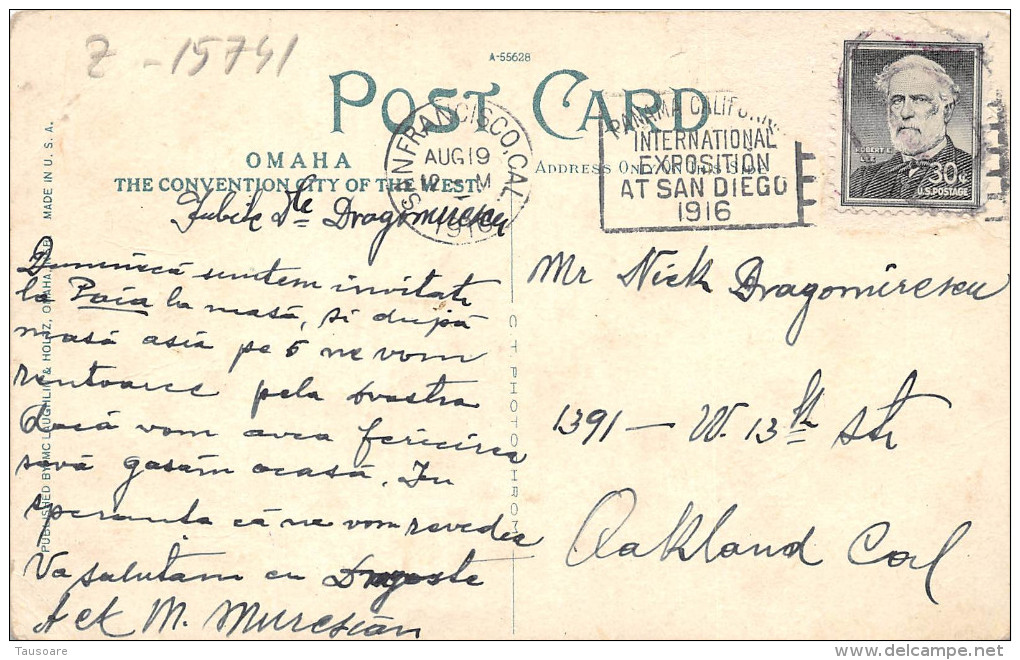 Z - 15741
A-55628
POST CARD
OMAHA
THE CONVENTION CITY OF THE WEST
ADDRESS ONLY ON THIS SIDE
SAN FRANCISCO, CAL.
AUG 19
M
1916
PANAMA CALIFORNIA
INTERNATIONAL
EXPOSITION
AT SAN DIEGO
1916
ROBERT E. LEE
30¢
U.S. POSTAGE
MADE IN U. S. A.
PUBLISHED BY MC LAUGHLIN & HOLTZ, OMAHA,
C T PHOTOCHROM
Dragomirescu
Duminică suntem invitati
la Paia la masă, si după
masă asia pe 5 ne vom
rentoarce pela voastra
dacă vom avea fericirea
savă gasăm acasă. In
speranta că ne vom revedea
Va salutam cu Dragoste
M. Muresian
Mr Nick Dragomirescu
1391 - W. 13th str
Oakland Cal
Tausoare
delcampe.net